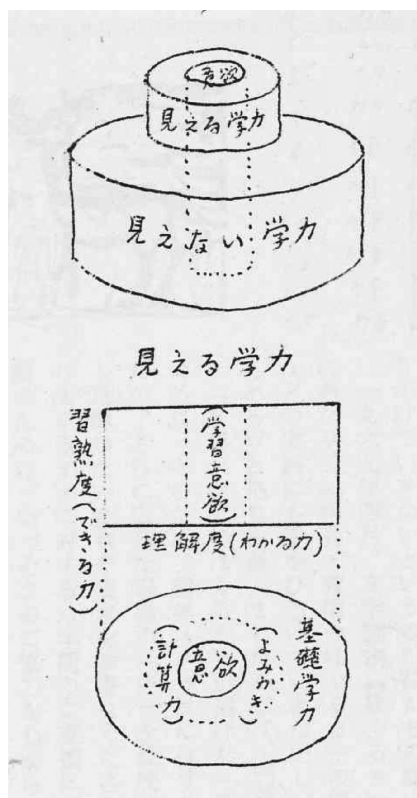 意欲
見える学力
見えない学力
見える学力
習熟度(できる力)
(学習意欲)
理解度(わかる力)
基礎学力
(よみかき)
意欲
(計算力)